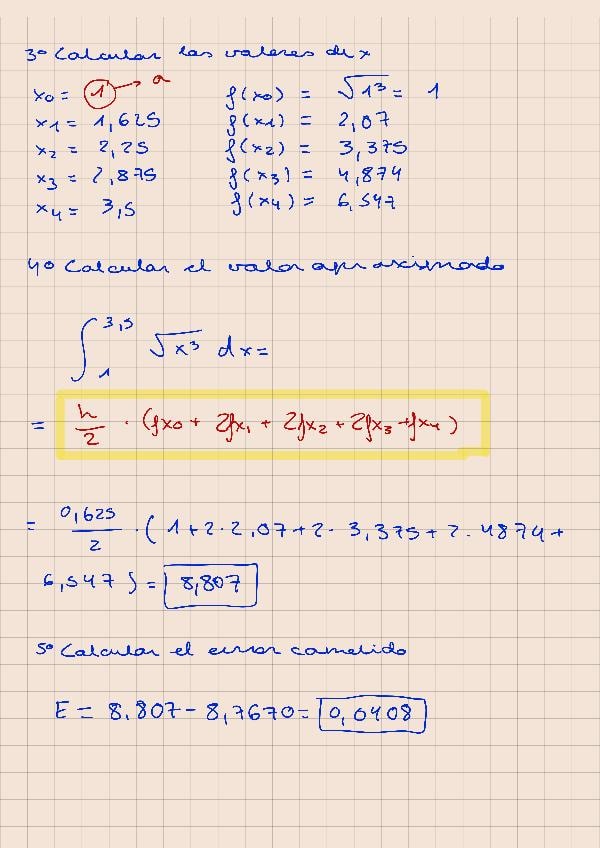 3º Calcular los valores de x
x0 = 1 → a f(x0) = √1³ = 1
x1 = 1,625 f(x1) = 2,07
x2 = 2,25 f(x2) = 3,375
x3 = 2,875 f(x3) = 4,874
x4 = 3,5 f(x4) = 6,547
4º Calcular el valor aproximado
∫₁^3,5 √x³ dx =
= h/2 · (fx0 + 2fx1 + 2fx2 + 2fx3 + fx4)
= 0,625/2 · (1+2·2,07+2·3,375+2·4874+
6,547) = 8,807
5º Calcular el error cometido
E = 8,807 - 8,7670 = 0,0408